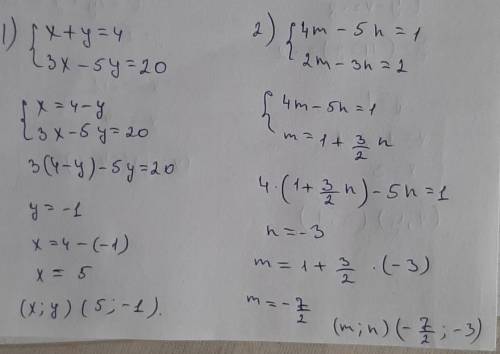 1) { x+y=4
3x-5y=20
{ x=4-y
3x-5y=20
3(4-y)-5y=20
y=-1
x=4-(-1)
x=5
(x;y) (5;-1).
2) { 4m-5n=1
2m-3n=2
{ 4m-5n=1
m=1+3/2 n
4·(1+3/2 n)-5n=1
n=-3
m=1+3/2·(-3)
m=-7/2
(m;n) (-7/2;-3)